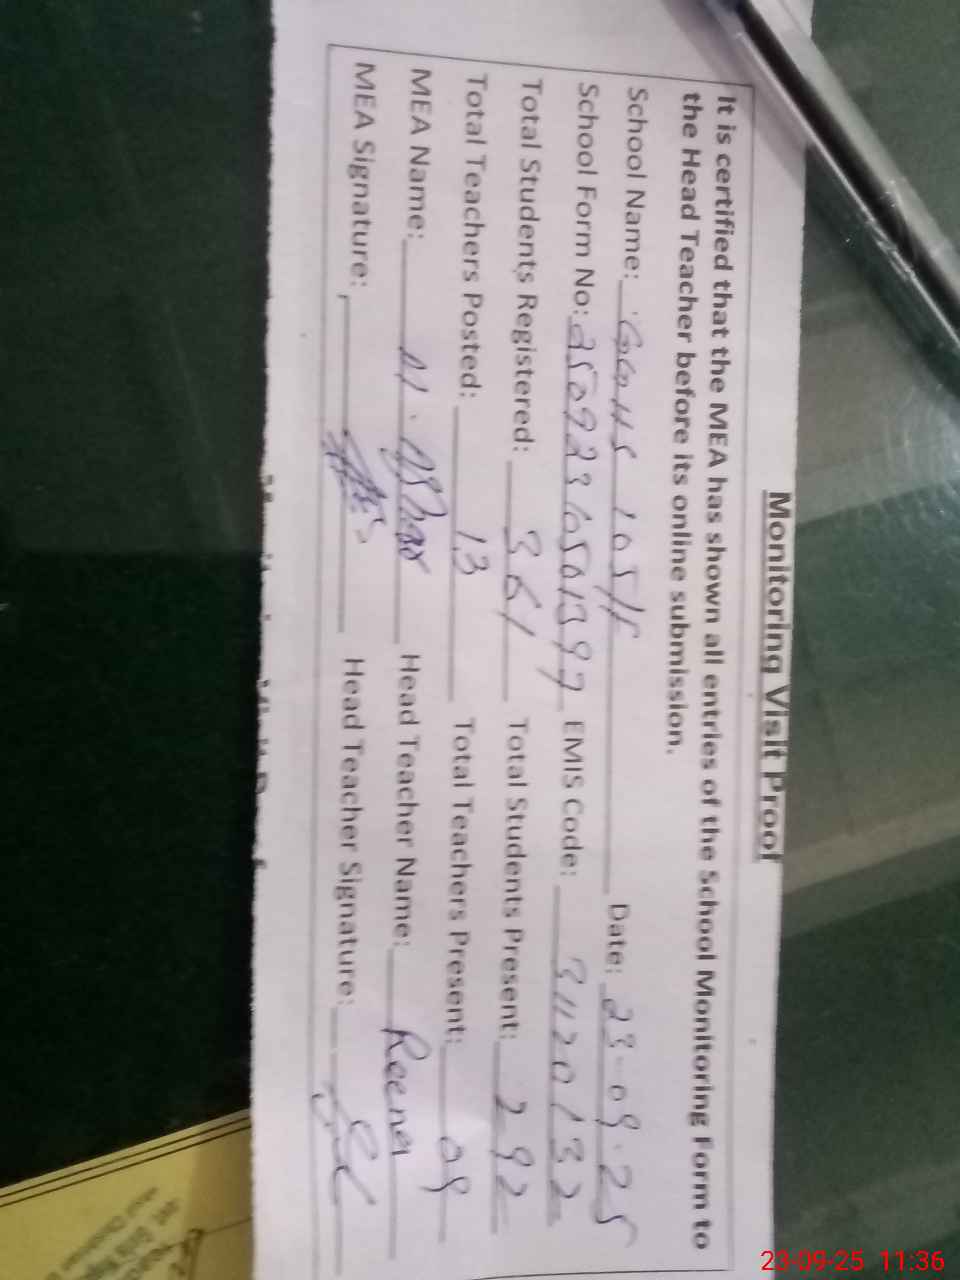 Monitoring Visit Proof
It is certified that the MEA has shown all entries of the School Monitoring Form to
the Head Teacher before its online submission.
School Name: GGHS 105/F Date: 23-09-25
School Form No: EMIS Code: 31120132
Total Students Registered: 361 Total Students Present: 292
Total Teachers Posted: 13 Total Teachers Present: 09
MEA Name: M. Head Teacher Name: Reena
MEA Signature: Head Teacher Signature:
23-09-25 11:36